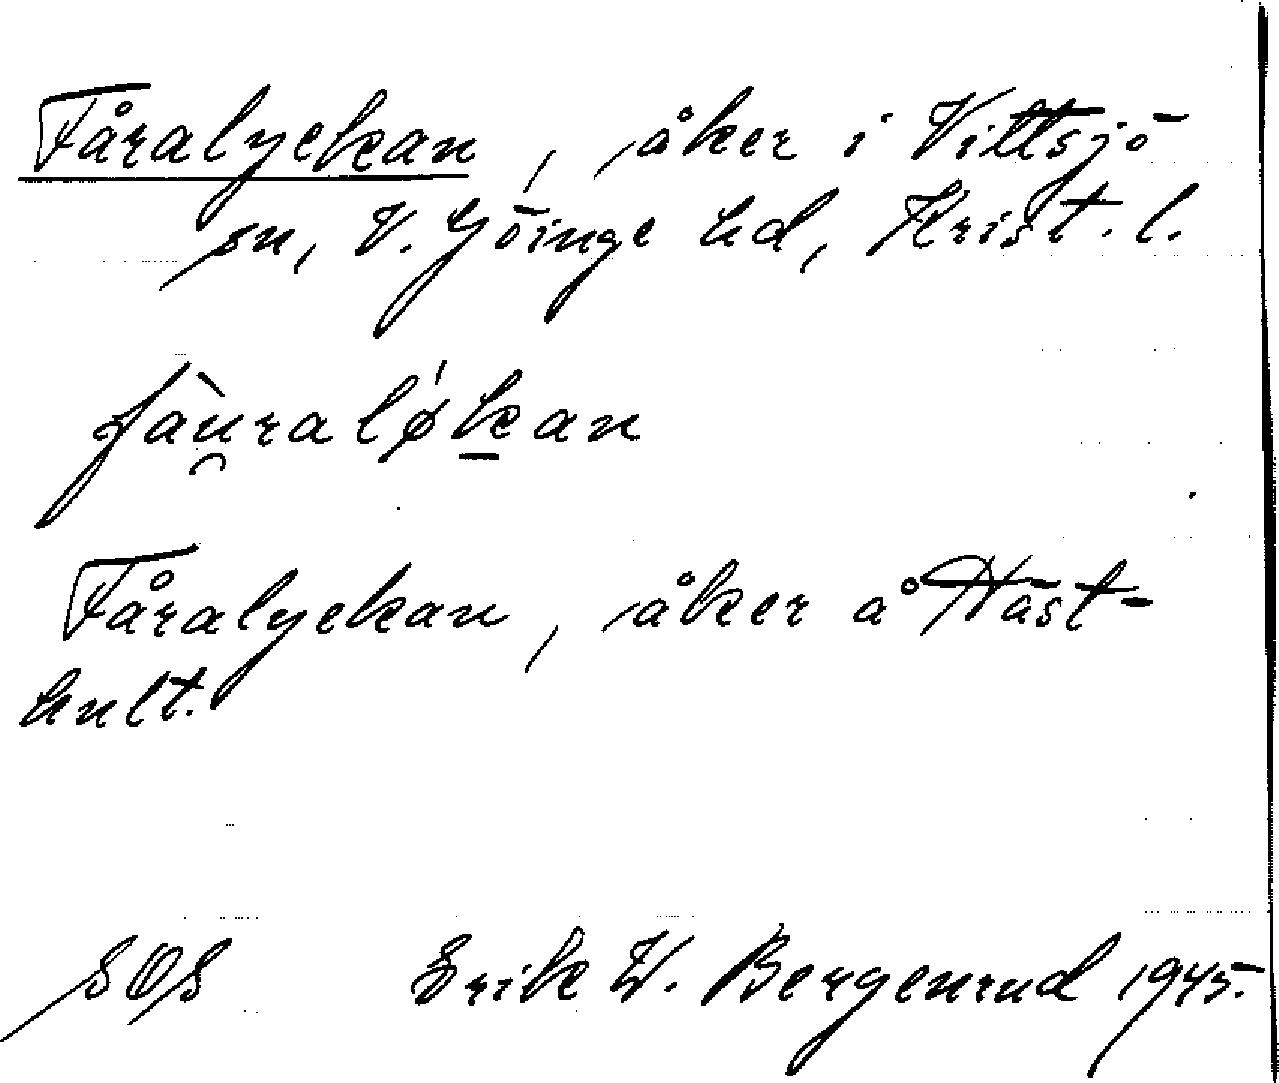 Fåralyckan, åker i Vittsjö
sn, V. Göinge hd, Krist. l.
fàu̯ralǿk̲an
Fåralyckan, åker å Häst-
hult.
SOS Erik W. Bergenrud 1945.